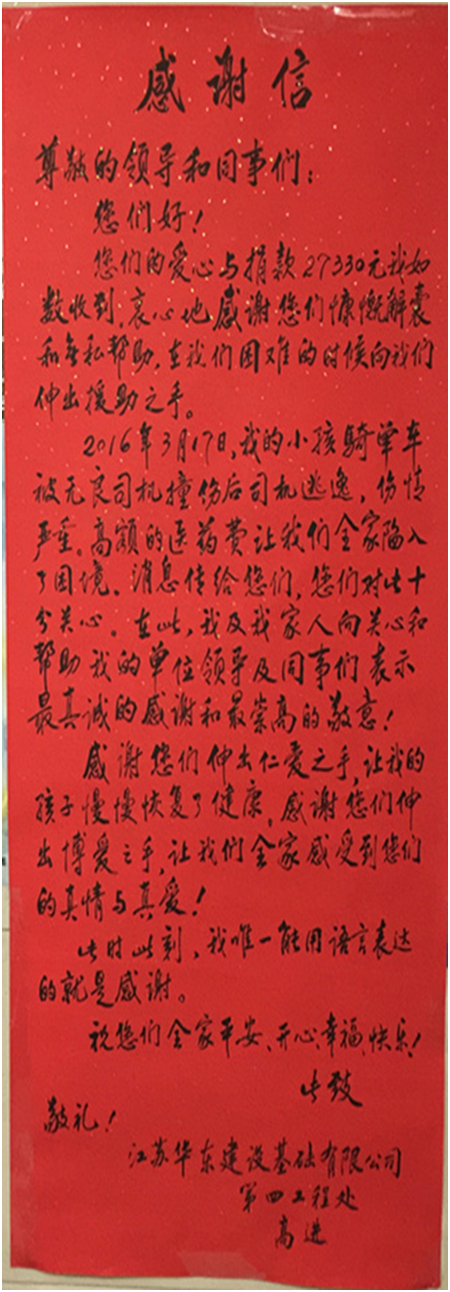 感谢信
尊敬的领导和同事们：
您们好！
您们的爱心与捐款27330元我如
数收到，衷心地感谢您们慷慨解囊
和无私帮助，在我们困难的时候向我们
伸出援助之手。
2016年3月17日，我的小孩骑单车
被无良司机撞伤后司机逃逸，伤情
严重。高额的医药费让我们全家陷入
了困境。消息传给您们，您们对此十
分关心。在此，我及我家人向关心和
帮助我的单位领导及同事们表示
最真诚的感谢和最崇高的敬意！
感谢您们伸出仁爱之手，让我的
孩子慢慢恢复了健康，感谢您们伸
出博爱之手，让我们全家感受到您们
的真情与真爱！
此时此刻，我唯一能用语言表达
的就是感谢。
祝您们全家平安、开心、幸福、快乐！
此致
敬礼！
江苏华东建设基础有限公司
第四工程处
高进